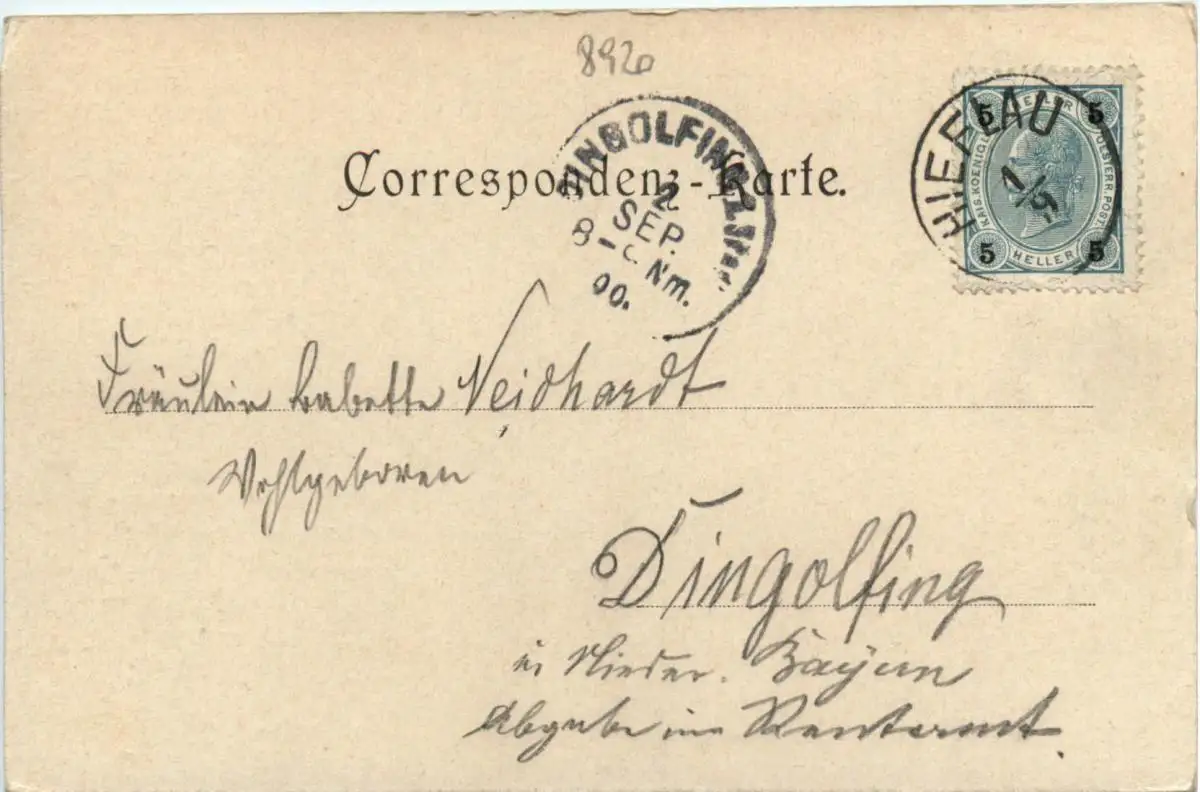 892
Correspondenz-Karte.
DINGOLFING
2
SEP.
8- Nm.
00.
HIEFLAU
1/9
5 HELLER 5
KAIS. KOENIGL. OESTERR. POST.
5 HELLER 5
Fräulein Babette Neidhardt
Wohlgeboren
Dingolfing
in Nieder. Bayern
Abgabe im Rentamt